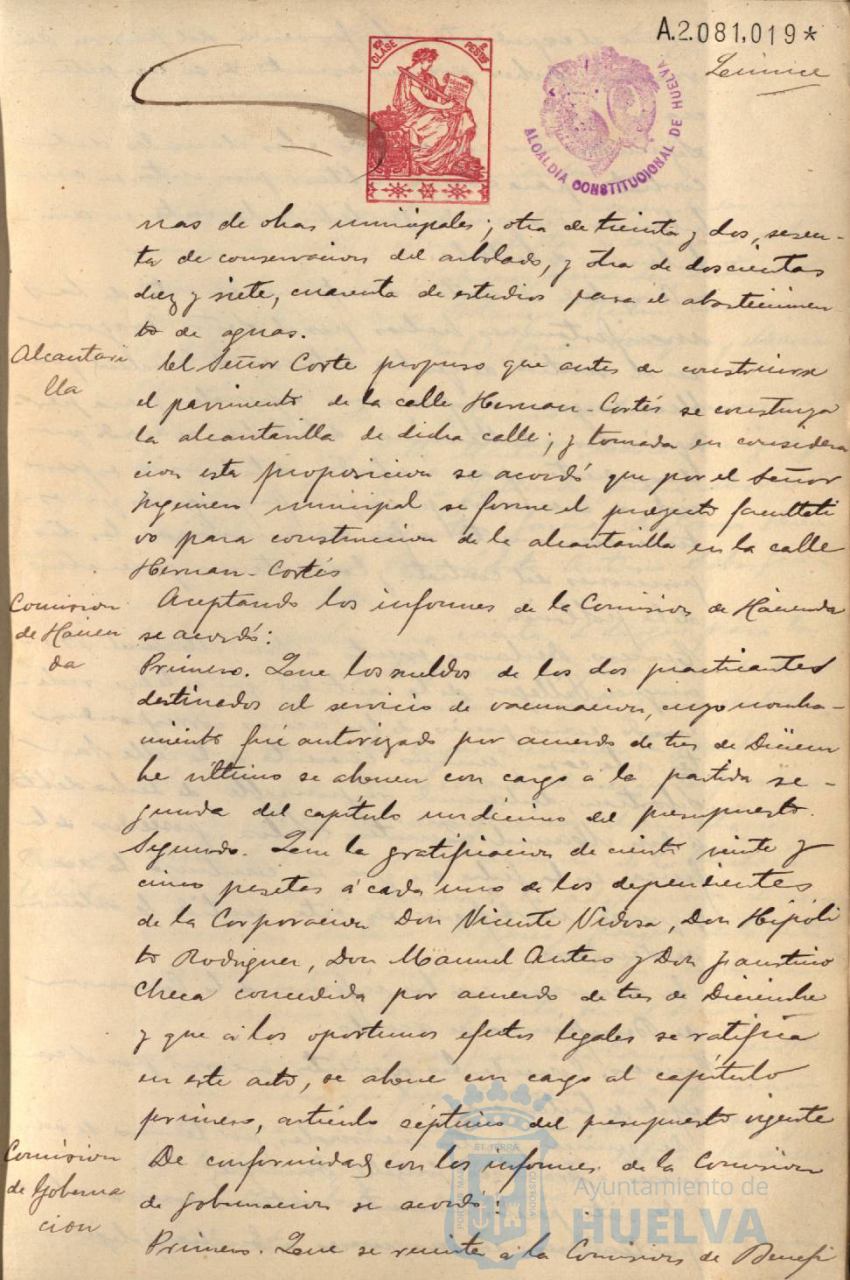 A.2.081,019*
10ª CLASE 2 PESETAS
ALCALDIA CONSTITUCIONAL DE HUELVA
Quince
nas de obras municipales; otra de treinta y dos, sesen-
ta de conservacion del arbolado, y otra de doscientas
diez y siete, cuarenta de estudios para el abastecimien
to de aguas.
Alcantari
lla
El Señor Corte propuso que antes de construirse
el pavimento de la calle Hernan-Cortés se construya
la alcantarilla de dicha calle; y tomada en considera
cion esta proposicion se acordó que por el Señor
Yngeniero municipal se forme el proyecto facultati
vo para construccion de la alcantarilla en la calle
Hernan-Cortés
Comision
de Hacien
da
Aceptando los informes de la Comision de Hacienda
se acordó:
Primero. Que los sueldos de los dos practicantes
destinados al servicio de vacunacion, cuyo nombra-
miento fué autorizado por acuerdo de tres de Diciem
bre último se abonen con cargo á la partida se-
gunda del capítulo undécimo del presupuesto.
Segundo. Que la gratificacion de ciento veinte y
cinco pesetas á cada uno de los dependientes
de la Corporacion Don Vicente Vidosa, Don Hipóli
to Rodriguez, Don Manuel Antero y Don Faustino
Checa concedida por acuerdo de tres de Diciembre
y que á los oportunos efectos legales se ratifica
en este acto, se abone con cargo al capítulo
primero, artículo séptimo del presupuesto vigente
Comision
de Goberna
cion
De conformidad con los informes de la Comision
de gobernacion se acordó:
Primero. Que se remita á la Comision de Benefi
Ayuntamiento de
HUELVA